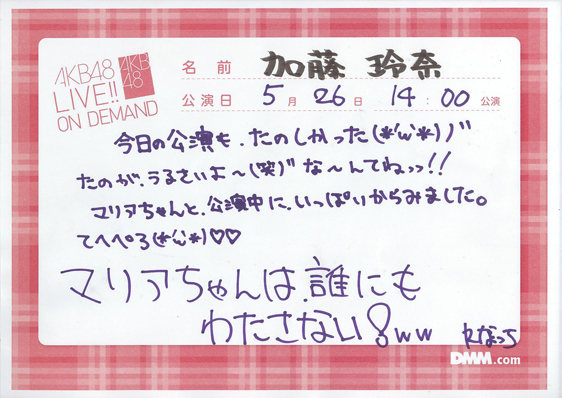 AKB48
LIVE!!
ON DEMAND
AKB
48
名前 加藤 玲奈
公演日 5月26日 14:00 公演
今日の公演も、たのしかった(*'ω'*)ﾉﾞ
たのが、うるさいよ~(笑)ﾞ な~んてねっっ!!
マリアちゃんと、公演中に、いっぱいからみました。
てへぺろ(*'ω'*)♡♡
マリアちゃんは、誰にも
わたさない!ww れなっち
DMM.com